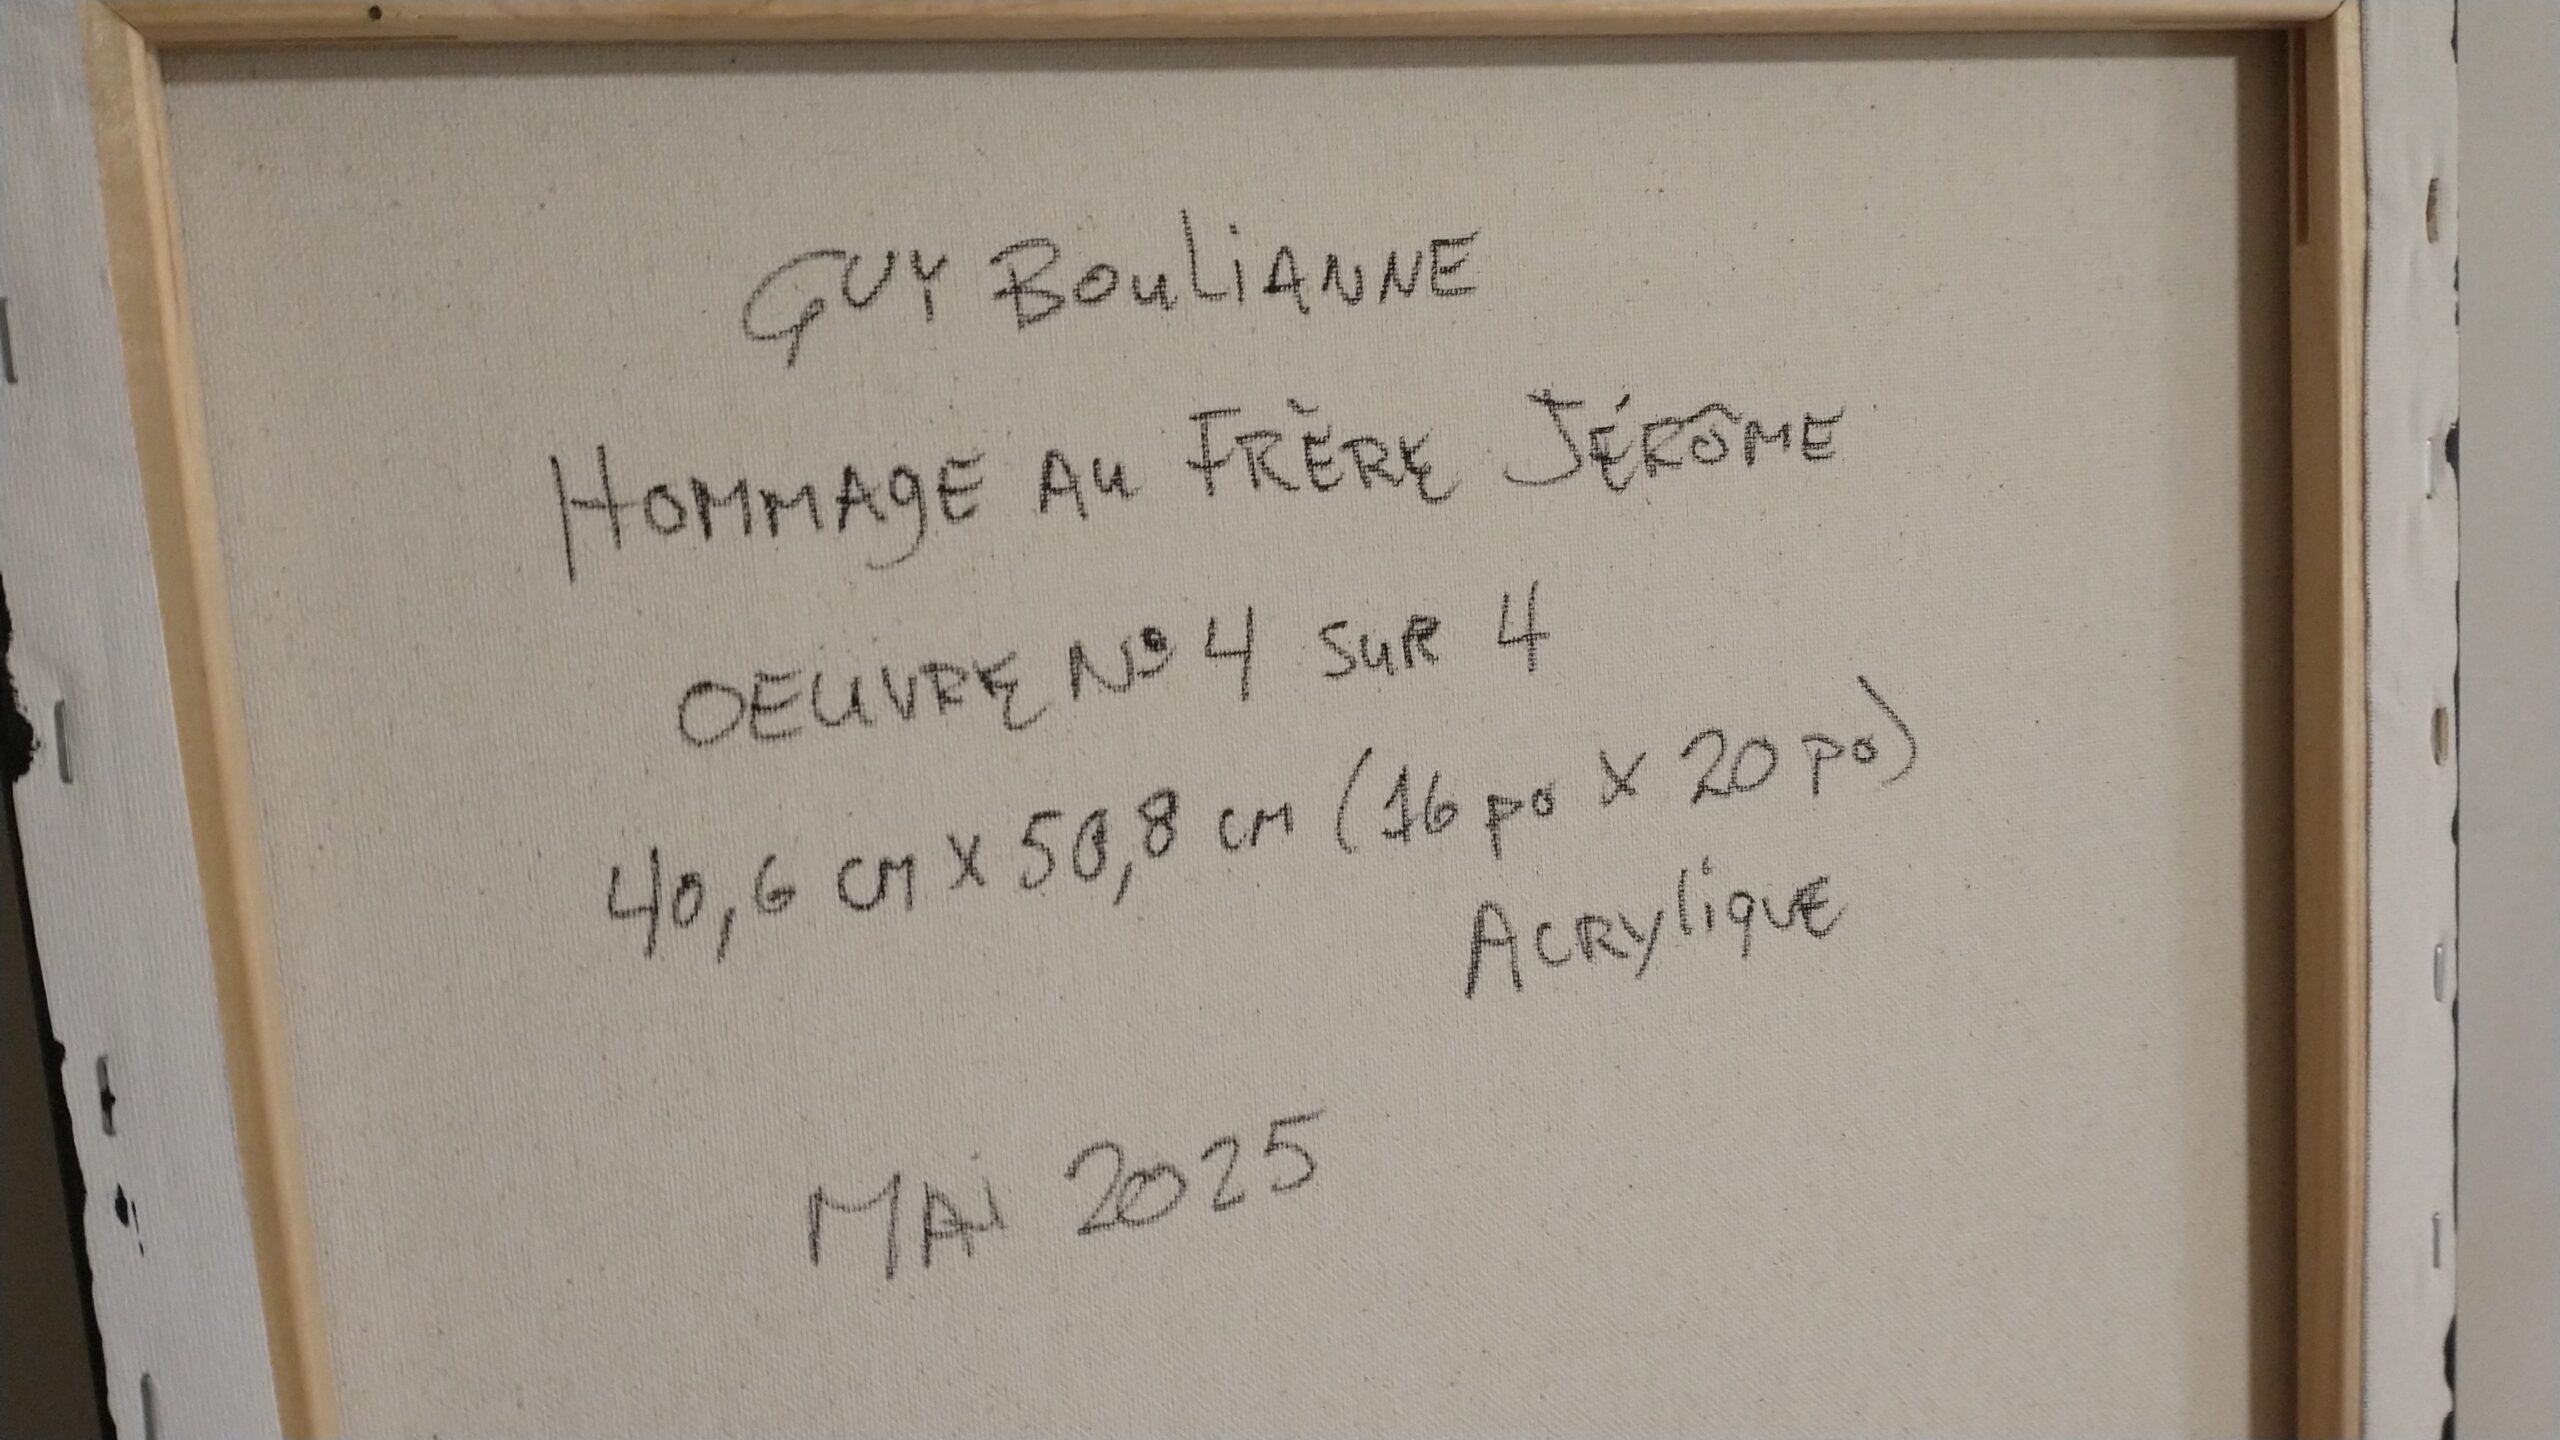 GUY BOULIANNE
HOMMAGE AU FRÈRE JÉRÔME
OEUVRE No 4 SUR 4
40,6 CM X 50,8 CM (16 po X 20 po)
ACRYLIQUE
MAI 2025